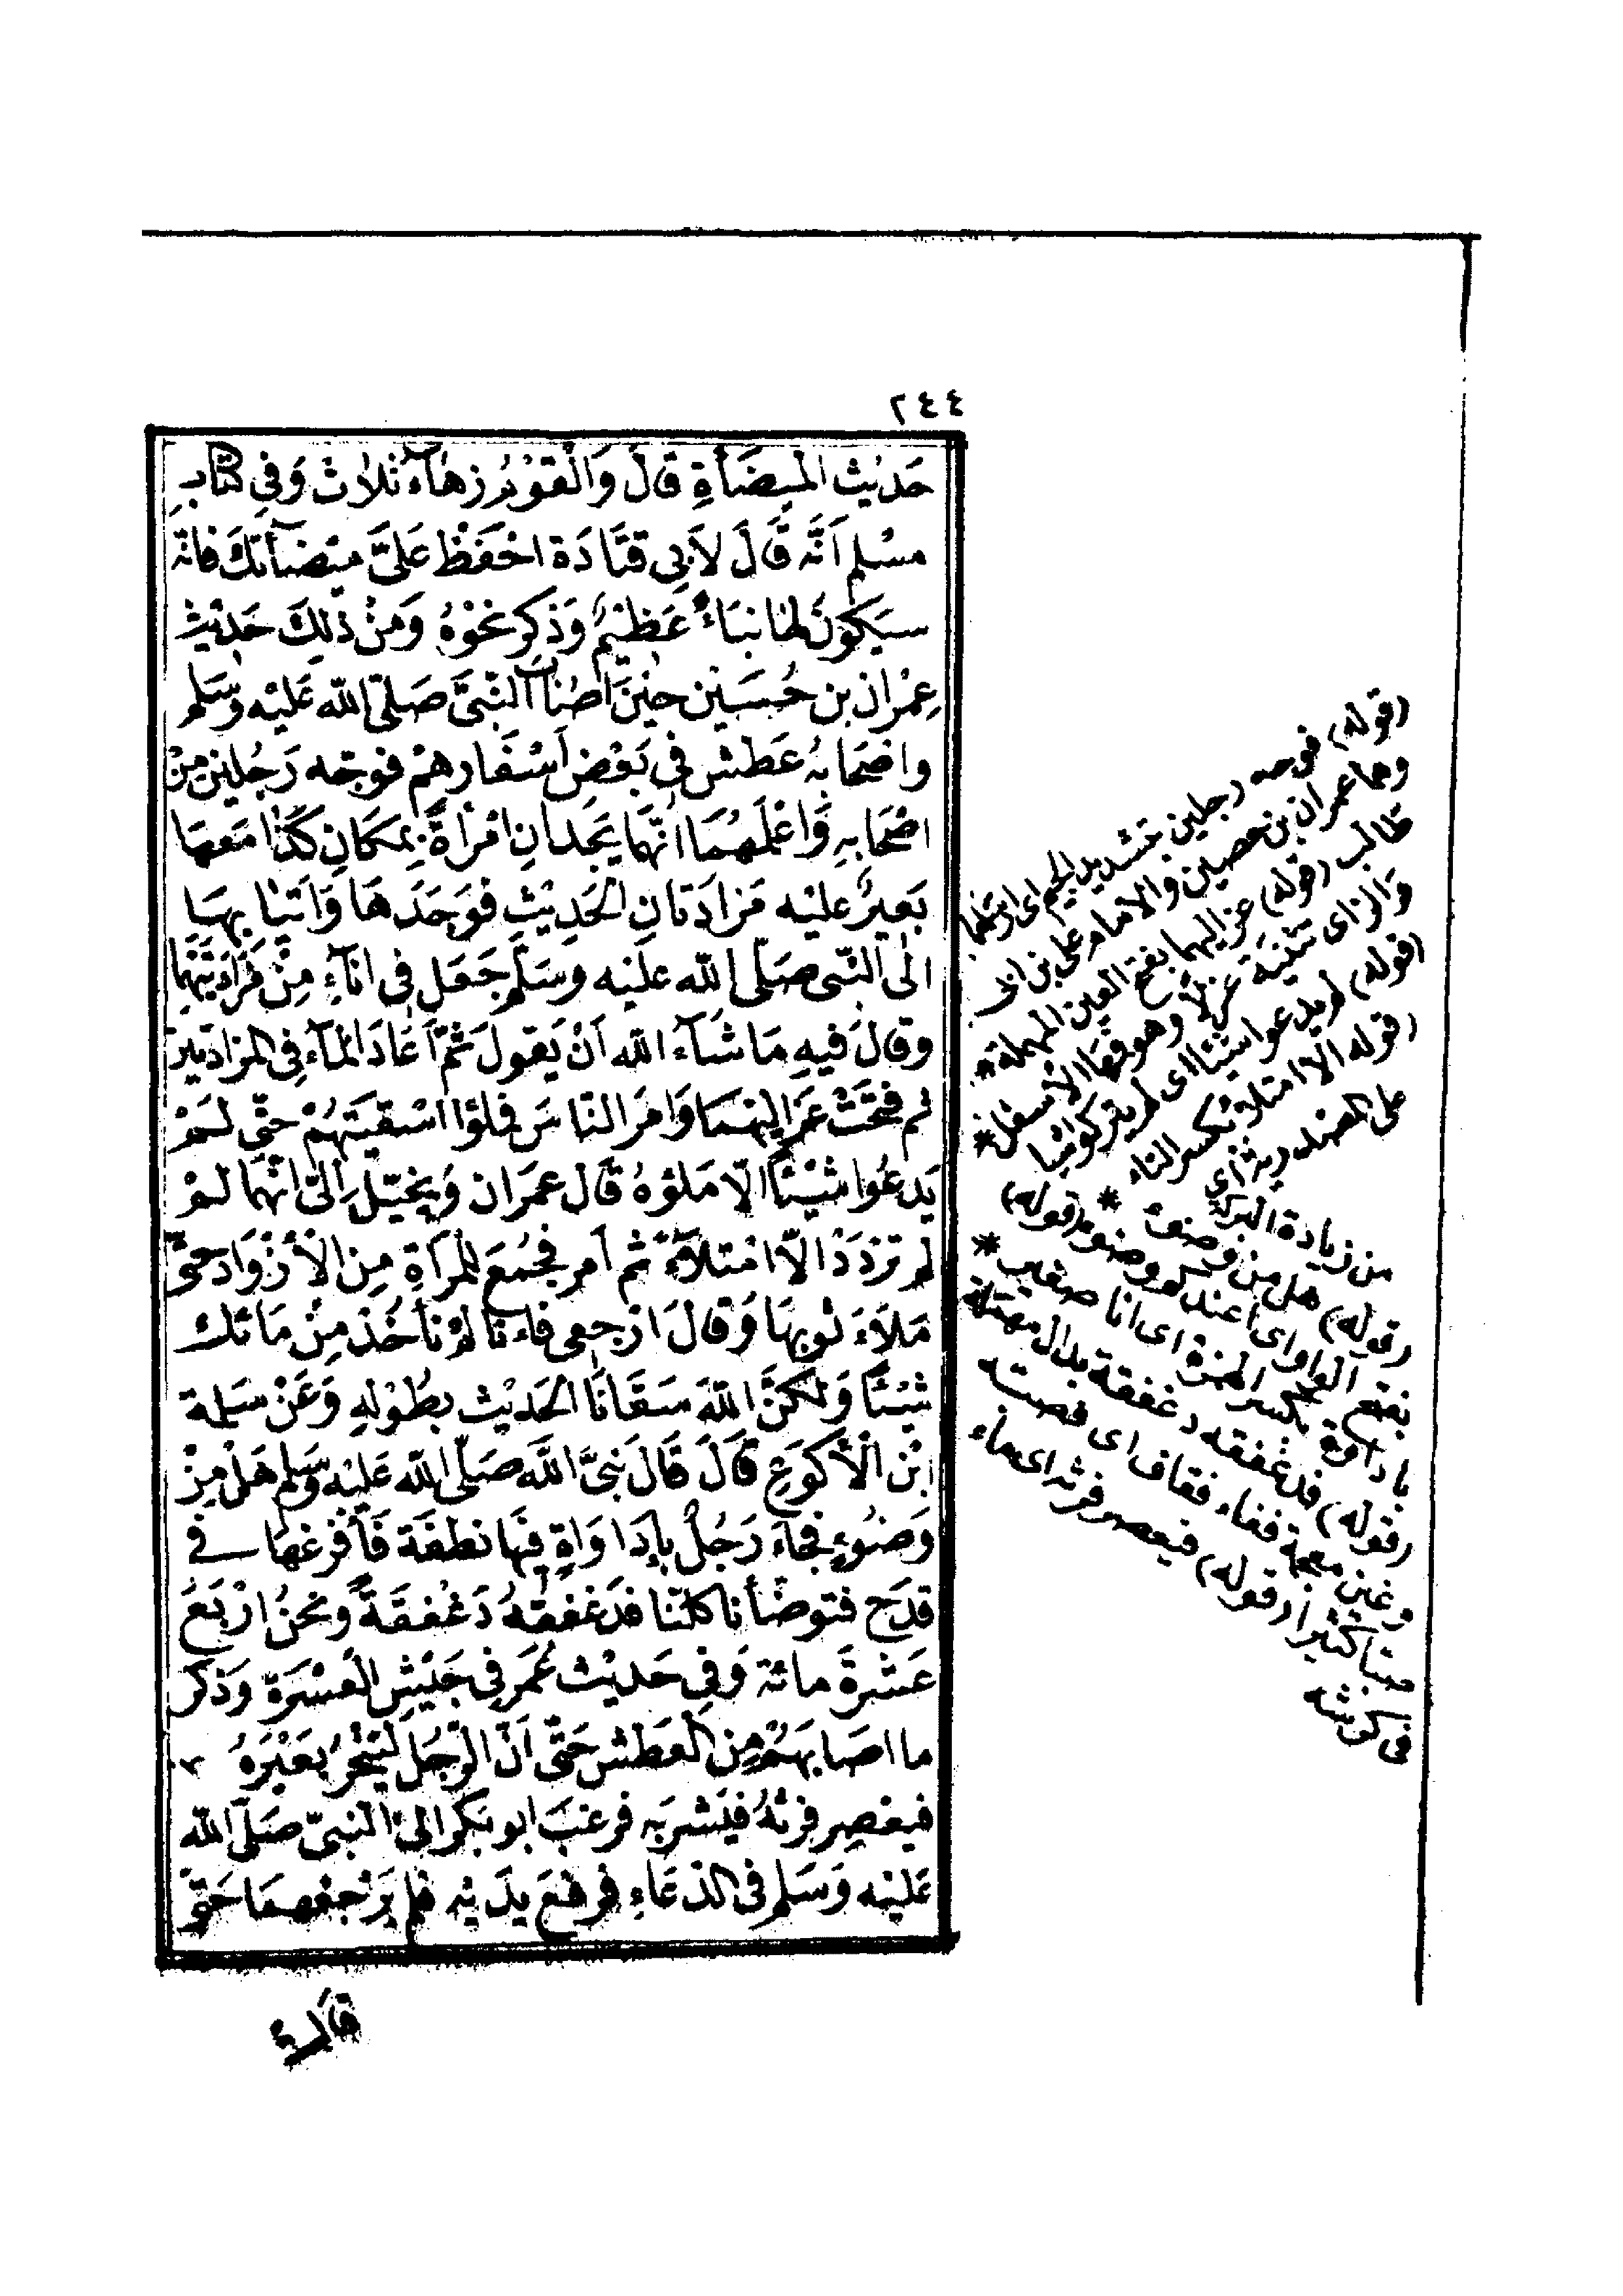 ٢٤٤
حَدِيثِ الْمِيضَأَةِ قَالَ وَالْقَوْمُ زُهَآءُ ثَلاٰثَ وَفِي كِتَابِ
مُسْلِم اَنَّهُ قَالَ لِاَبِي قَتَادَة احْفَظْ عَلَيَّ مِيْضَأَتَكَ فَانّه
سَيَكُونُ لهَا نَبَاءٌ عَظِيْمٌ وَذَكَر نَحْوَهُ وَمِنْ ذٰلِكَ حَدِيْثُ
عِمْرَان بن حُسَيْن حِيْنَ اَصَابَ النَّبِيَّ صَلَّى الله عَلَيْه وَسَلم
وَاصْحَابَهُ عَطَش فِي بَعْضِ اَسْفَارِهِمْ فوجّه رَجُلَيْن مِنْ
اصْحَابِهِ وَاعْلَمَهُمَا انَّهمَا يَجِدَانِ امْرَأَةً بِمَكَانِ كَذَا مَعَهَا
بَعِيرٌ عَلَيْه مَزَادَتَانِ الحَدِيْثِ فَوَجَدَهَا وَاَتَيَا بِهَا
الٰى النَّبِى صَلّٰى الله عَلَيْه وَسَلَّم جَعَل فِى انَآءٍ مِنْ مَزَادَتَيْهَا
وَقَالَ فِيهِ مَا شَآءَ الله اَنْ يَقُولَ ثُمّ اَعَادَ الْمآءَ فِى المَزادتَين
ثم فُتِحَتْ عَزَالِيهِمَا وَامَرَ النّاسَ فَمَلَؤا اسْقِيَتَهُمْ حَتّٰى لَمْ
يَدعُوا شَيْئًا الّا مَلَؤهُ قَال عمرَان وَيُخيّلُ اِلَىَّ انّهُمَا لَمْ
لم تَزْدَدْ الّا امْتِلَآءً ثم اَمر فَجُمِعَ للمرأةِ مِن الْأزْوَادِ حَتّٰى
مَلَأَ ثَوبهَا وَقَالَ ارْجعى فانَّا لَمْ نَأخُذ مِنْ مَائك
شَيْئًا وَلٰكِنَّ اللّهَ سَقَانَا الحَديْث بِطُوْلِهِ وَعَنْ سَلمة
ابْن الْأَكْوَعِ قَالَ قَالَ نَبِىّ اللّه صَلّٰى اللّه عَلَيْه وَسَلم هَلْ مِنْ
وَضُوءٍ فَجَاءَ رَجُلٌ بِإِدَاوَةٍ فِيهَا نُطْفَة فَأَفْرَغَهَا فِى
قَدَح فتوضّأنا كلّنَا نُدَغفِقهُ دَغْفَقَةً وَنحنُ ارْبَعَ
عَشْرَةَ مائة وَفِى حَديْث عُمَر فِى جَيْشِ الْعُسْرَة وَذَكَر
ما اصَابهَمُ مِن الْعَطَش حَتّٰى اَنّ الرّجُل لَيَنْحَرُ بَعِيْرَهُ
فيَعْصِر فَرْثَهُ فيَشْرَبَه فرغب ابو بَكر الٰى النّبىّ صَلّى الله
عَلَيْه وَسَلم فى الدّعَاءِ فرفع يَدَيْه فلم يَرْجِعهمَا حَتّٰى
(قوله) فوجه رجلين بتشديد الجيم اى ارسلهما
وهما عمران بن حصين والامام على بن ابى
طالب (قوله) عزاليهما بفتح العين المهملة
والزاى تثنية عزلاء وهو فمها الاسفل *
(قوله) لم يدعوا شيئا اى لم يتركوا شيئا
(قوله الا امتلاء بكسر التاء
على المصدرية اى
من زيادة البركة *
(قوله) هل من وضوء
بفتح الواو اى اعندكم وضوء (قوله)
باداوة بكسر الهمزة اى انا صغير *
(قوله) ندغفقه دغفقة بدال مهملة
وغين معجمة ففاء فقاف اى نصبه
صبا كثيرا (قوله) فيعصر فرثه اى ماء
فى كرشه
قَالَتْ